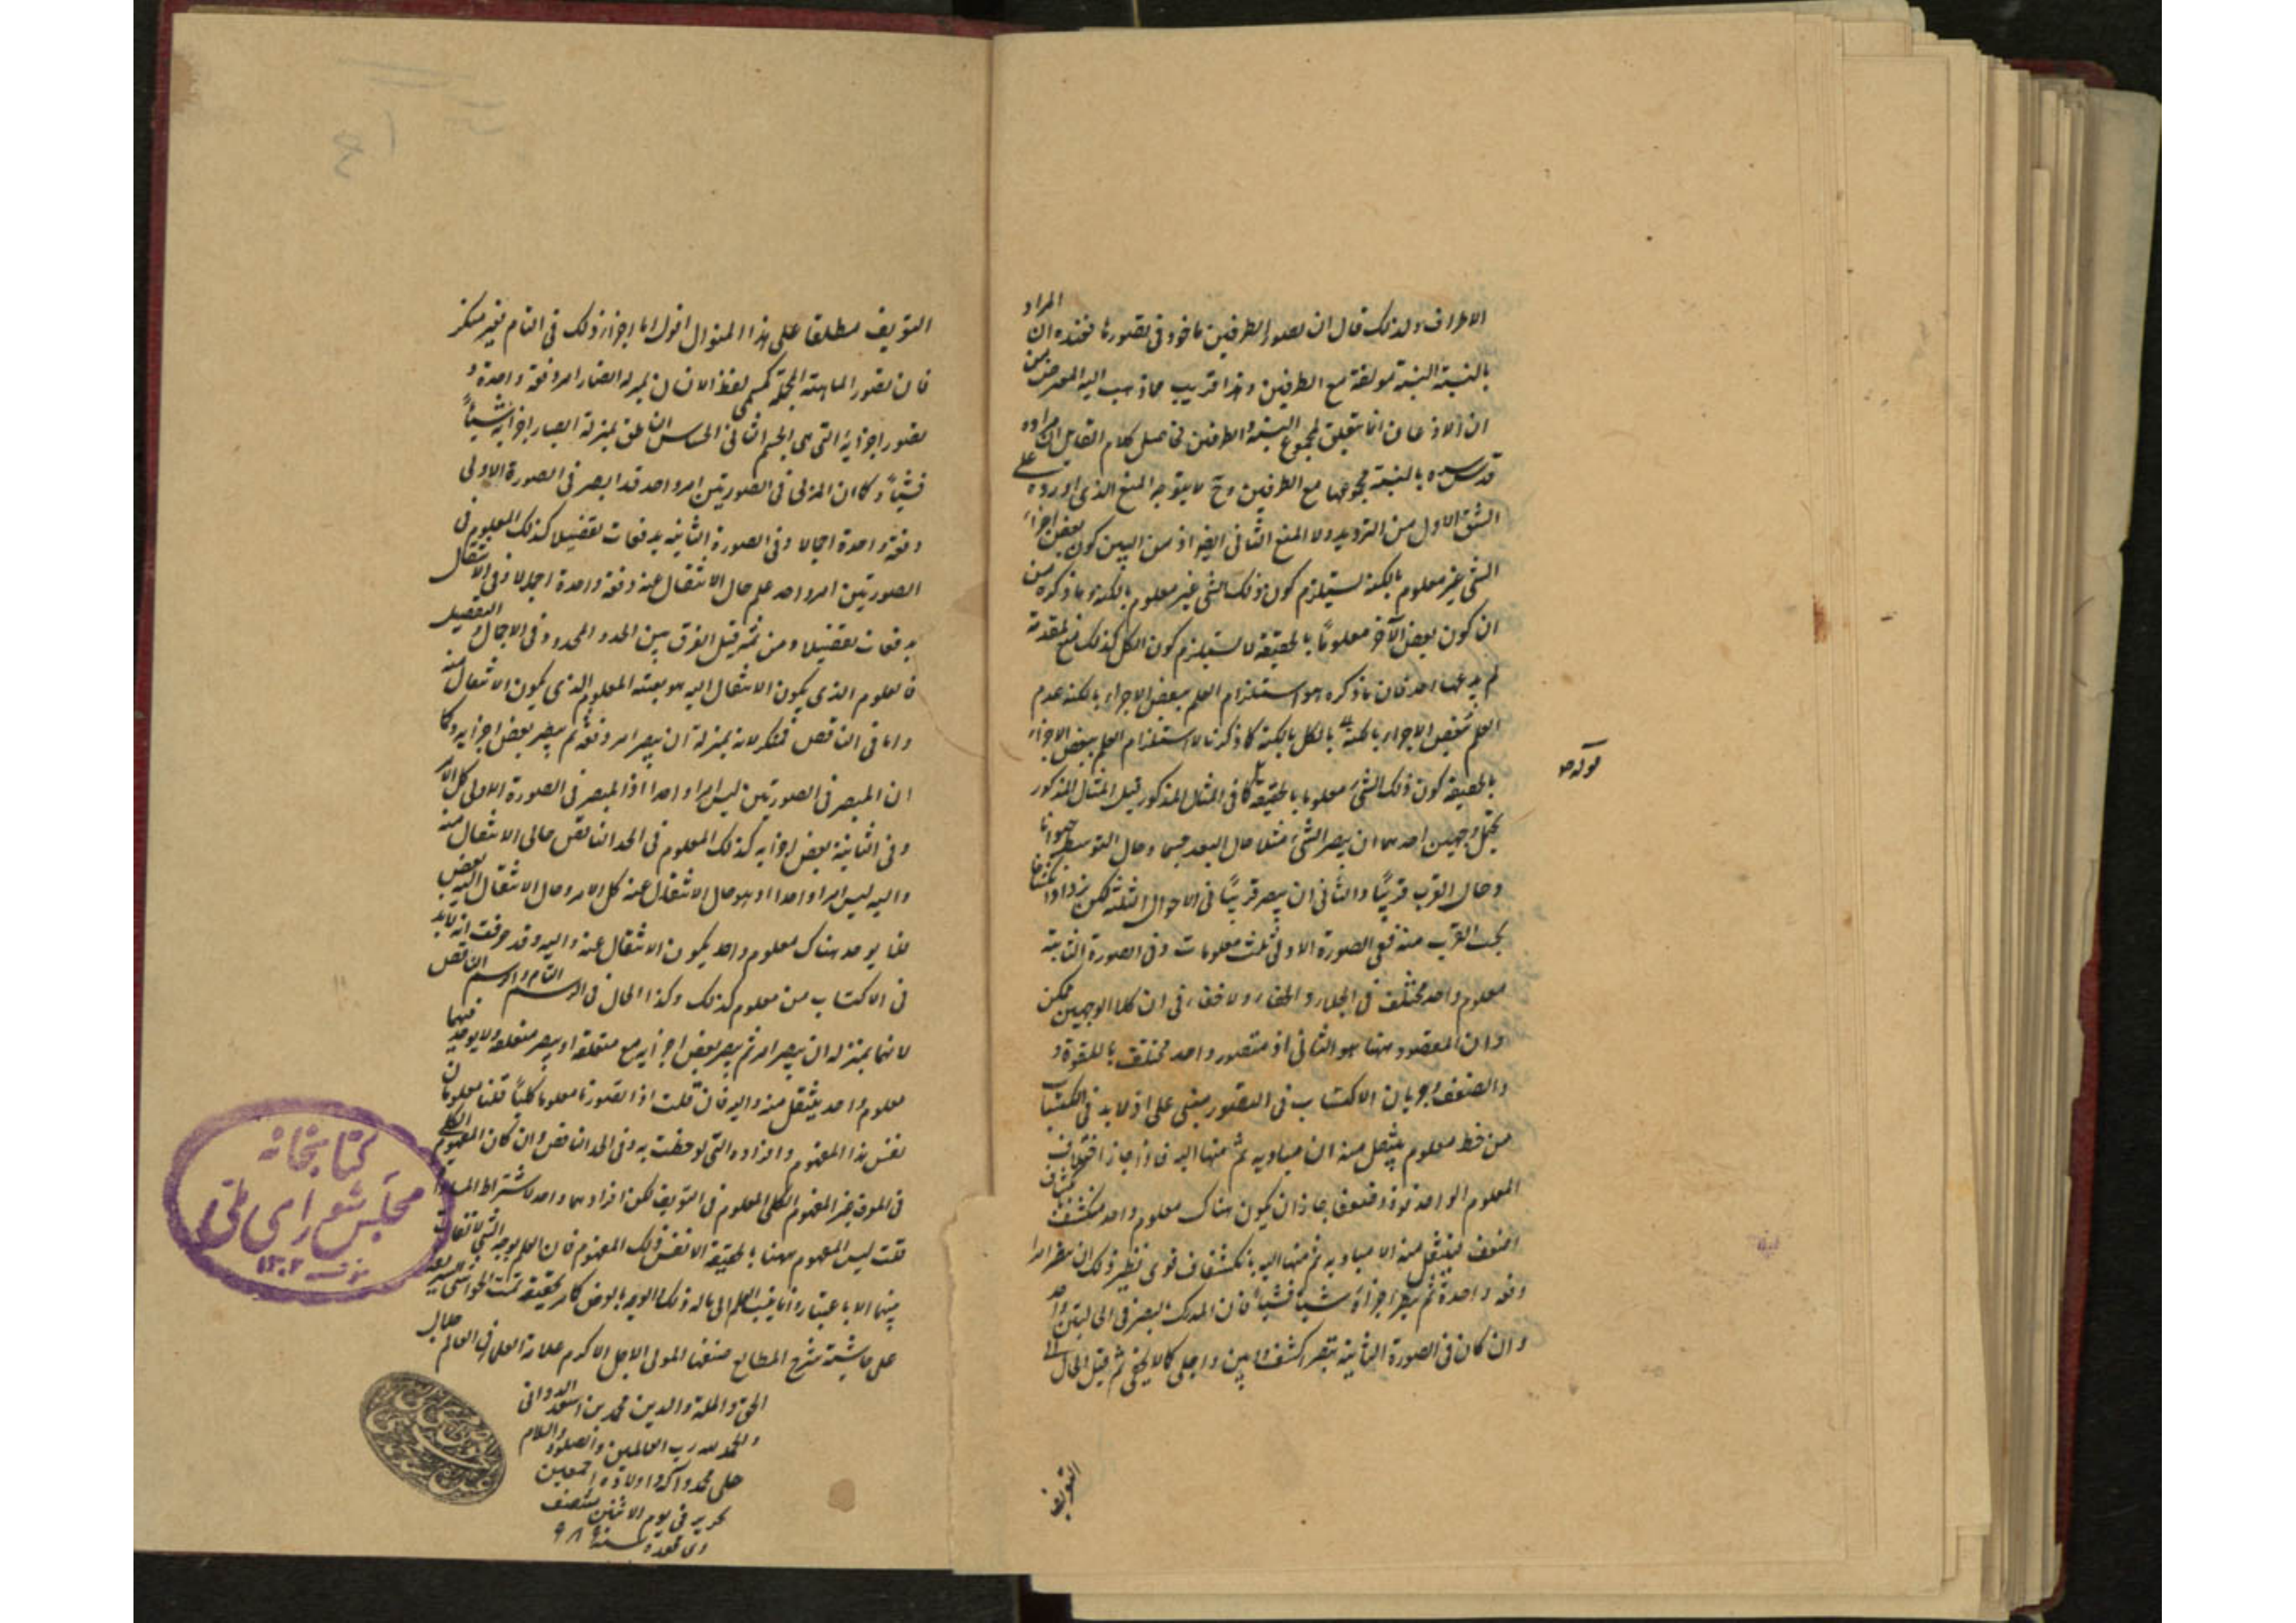 الاطراف ولذلك قال ان تصور الطرفين ماخوذ فى تصورها فعنده ان المراد
بالنسبة النسبة مولفة مع الطرفين وهذا قريب مما ذهب اليه المعترض من
ان الاذعان انما يتعلق بمجموع النسبة والطرفين فحاصل كلام القايل ان مراده
قدس سره بالنسبة مجموعها مع الطرفين وح لا يتوجه المنع الذى اورده على
الشق الاول من الترديد ولا المنع الثانى ايضا اذ من البين كون بعض اجزاء
الشى غير معلوم بالكنه يستلزم كون ذلك الشى غير معلوم بالكنه وما ذكره من
ان كون بعض الآخر معلومًا بالحقيقة لا يستلزم كون الكل كذلك منع لمقدمة
لم يدعها احد فان ما ذكره هو استلزام العلم ببعض الاجزاء بالكنه عدم
العلم ببعض الاجزاء بالكنه بالكل بالكنه كما ذكرنا لا استلزام العلم ببعض الاجزاء
بالحقيقة كون ذلك الشى معلوما بالحقيقة كما فى المثال المذكور قيل المثال المذكور
يحتمل وجهين احدهما ان يبصر الشى مثلا حال البعد جسما وحال التوسط حيوانا
وحال القرب فرسًا والثانى ان يبصر فرسًا فى الاحوال الثلثة لكن يزداد انكشافا
بحسب القرب منه ففى الصورة الاولى ثلث معلومات وفى الصورة الثانية
معلوم واحد مختلف فى الجلاء والخفاء ولا خفاء فى ان كلا الوجهين ممكن
وان المقصود ههنا هو الثانى اذ متصور واحد مختلف بالقوة و
والضعف وجريان الاكتساب فى التصور مبنى على اذ لا بد فى اكتساب
من معلوم ينتقل منه ان مباديه ثم منها اليه فاذا جاز اختلاف
المعلوم الواحد قوة وضعفا جاز ان يكون هناك معلوم واحد منكشف
اضعف فينتقل منه الا مباديه ثم منها اليه بانكشاف قوى نظير ذلك ان يبصر امرا
دفعة واحدة ثم يبصر اجزاؤه شيئا فشيئا فان المدرك بالبصر فى الحالتين واحد
وان كان فى الصورة الثانية يبصر اكشف وابين واجلى كما لا يخفى ثم قيل الحال
التعريف
قوله ص
التعريف مطلقا على هذا المنوال اقول اما اجزاء ذلك فى التام فغير منكر
فان تصور الماهية المجملة كمسمى لفظ الانسان بمنزلة ابصار امر دفعة واحدة و
تصور اجزائه التى هى الجسم النامى الحساس الناطق بمنزلة ابصار اجزائه شيئًا
فشيئًا وكما ان المرئى فى الصورتين امر واحد قد ابصر فى الصورة الاولى
دفعة واحدة اجمالا وفى الصورة الثانية بدفعات تفصيلا كذلك المعلوم فى
الصورتين امر واحد علم حال الانتقال عنه دفعة واحدة اجمالا وفى الانتقال
بدفعات تفصيلا ومن ثم قيل الفرق بين الحد والمحدود فى الاجمال والتفصيل
فالمعلوم الذى يكون الانتقال اليه هو بعينه المعلوم الذى يكون الانتقال منه
واما فى الناقص فمنكر لانه بمنزلة ان يبصر امر دفعة ثم يبصر بعض اجزائه وكما
ان المبصر فى الصورتين ليس امرا واحدا اذ المبصر فى الصورة الاولى كل الامر
وفى الثانية بعض اجزائه كذلك المعلوم فى الحد الناقص حالى الانتقال منه
واليه ليس امرا واحدا اذ هو حال الانتقال عنه كل الامر وحال الانتقال اليه بعض
فلا يوجد هناك معلوم واحد يكون الانتقال عنه واليه وقد عرفت انه لا بد
فى الاكتساب من معلوم كذلك وكذا الحال فى الرسم التام والرسم الناقص
لانها بمنزلة ان يبصر امر ثم يبصر بعض اجزائه مع متعلقه او يبصر متعلقه ولا يوجد فيها
معلوم واحد ينتقل منه واليه فان قلت اذا تصورنا معلوما كليًا قلنا معلومان
نفس هذا المفهوم وافراده التى لوحظت به وفى الحد الناقص وان كان المفهوم الكلى
فى المعرف غير المفهوم الكلى المعلوم فى التعريف لكن افرادهما واحد لاشتراط المساواة
قلت ليس المعلوم ههنا بالحقيقة الا نفس ذلك المفهوم فان العلم بوجه الشى لا تفاوت
بينهما الا باعتبار وانما ينسب العلم الى ماله ذلك الوجه بالعرض كما مر تحقيقه تمت الحواشى الشريفة
على حاشية شرح المطالع صنفها المولى الاجل الاكرم علامة العلماء فى العالم جلال
الحق والملة والدين محمد بن اسعد الدوانى
والحمد لله رب العالمين والصلوة والسلام
على محمد وآله واولاده اجمعين
تحرير فى يوم الاثنين منتصف
ذى قعده سنة ٩٨٩
كتابخانه
مجلس شوراى ملى
١٣٠٢